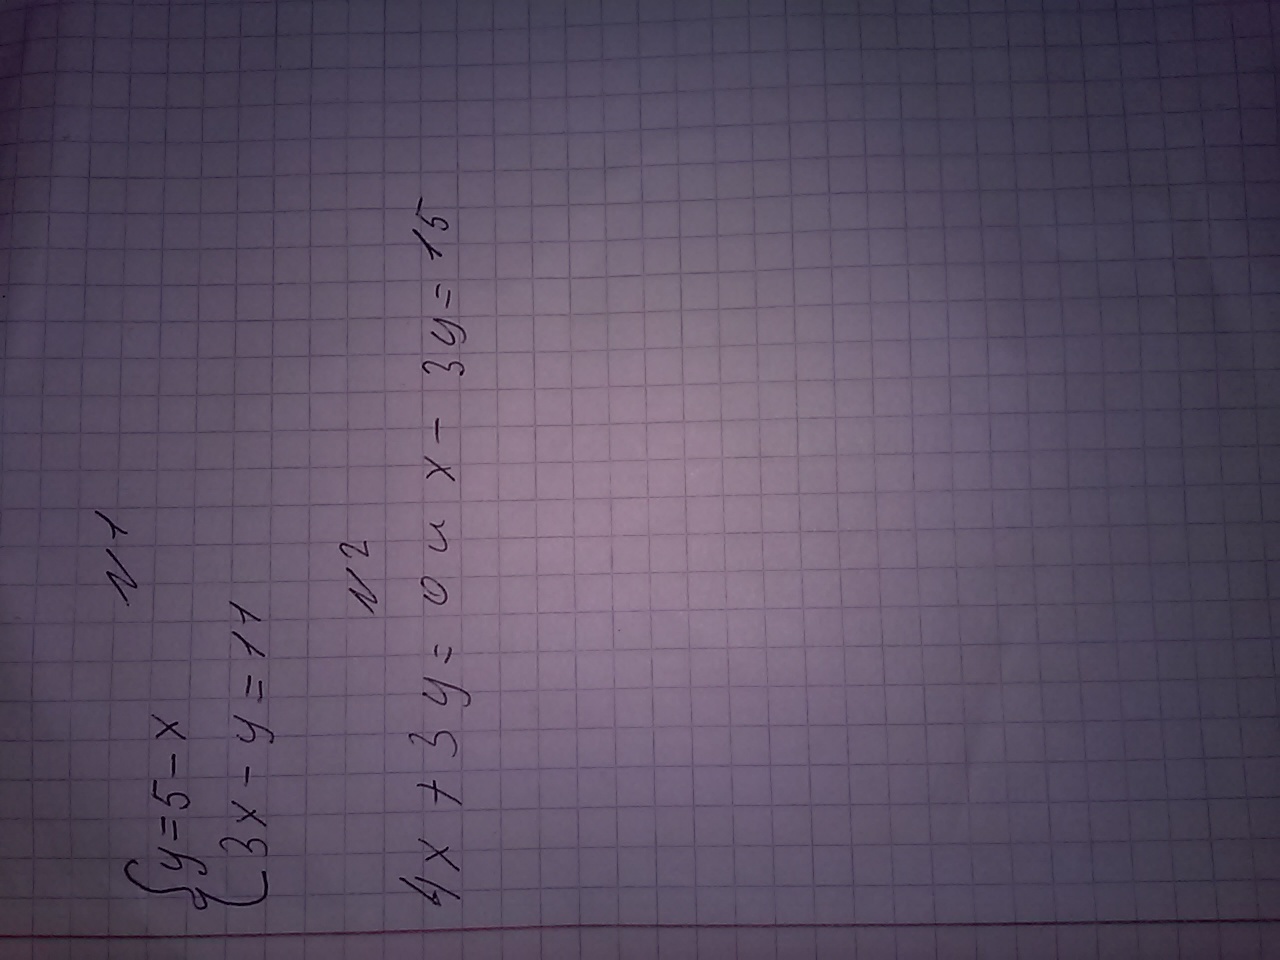 N1
{ y=5-x
3x-y=11
N2
4x+3y=0 и x-3y=15